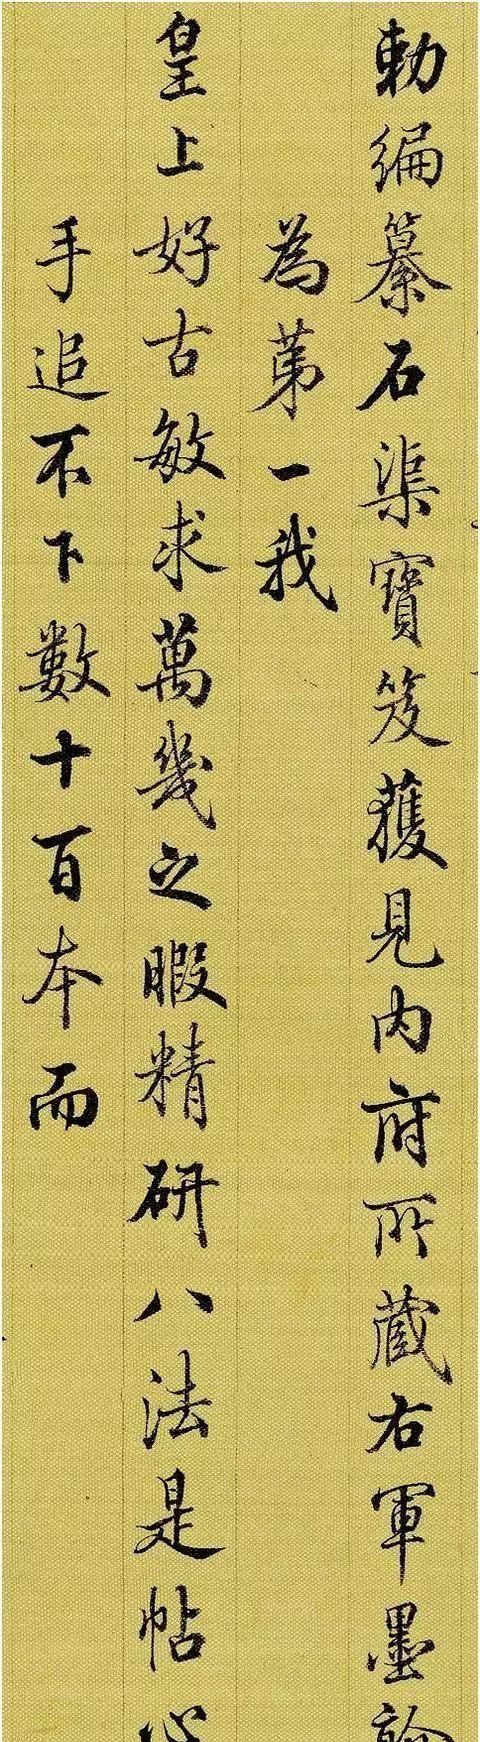 勅編纂石渠寶笈獲見内府所蔵右軍墨
為苐一我
皇上好古敏求萬幾之暇精研八法是帖心
手追不下數十百本而